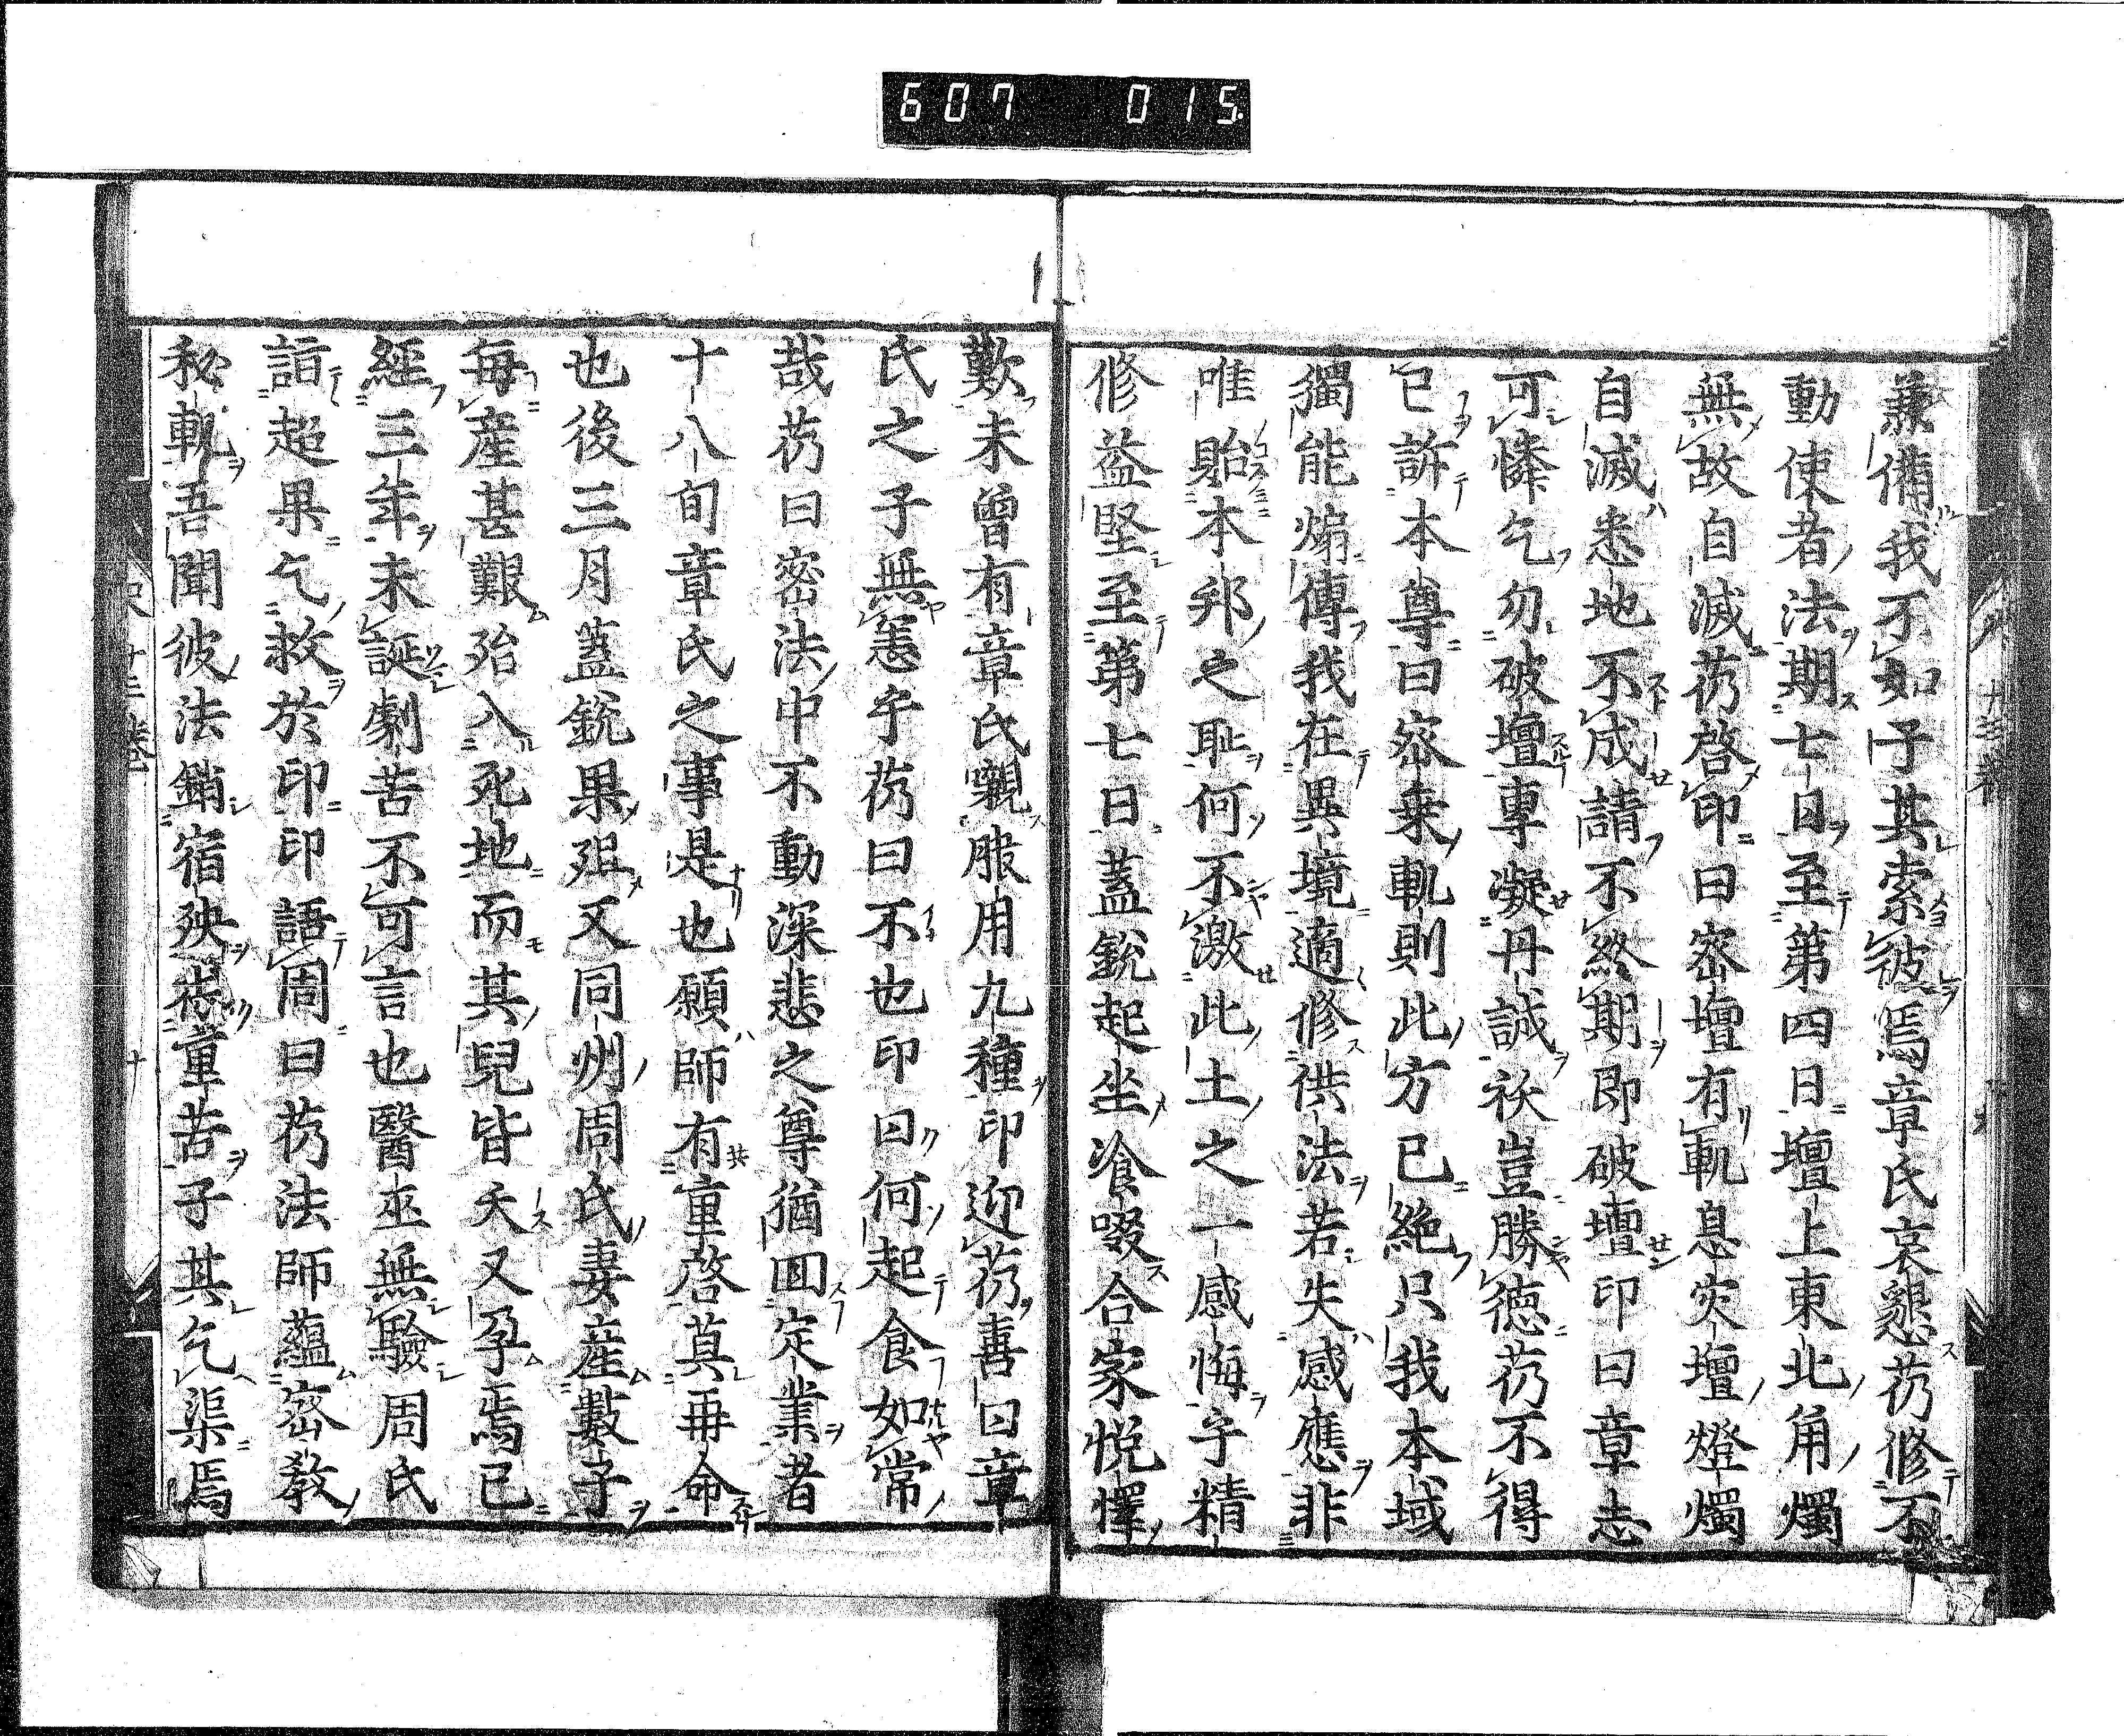 607 015
兼備我不如子其索彼焉章氏哀懇芿修不
動使者法期七日至第四日壇上東北角燭
無故自滅芿啓印曰密壇有軌息灾壇燈燭
自滅悉地不成請不終期即破壇印曰章志
可憐乞勿破壇專凝丹誠祅豈勝德芿不得
已訴本尊曰密乗軌則此方已絶只我本域
獨能煽傳我在異境適修供法若失感應非
唯貽本邦之耻何不激此土之一感悔乎精
修益堅至第七日蓋銳起坐飡啜合家悅懌
歎未曾有章氏襯服用九種印迎芿喜曰章
氏之子無恙乎芿曰不也印曰何起食如常
哉芿曰密法中不動深悲之尊猶囬定業者
十八旬章氏之事是也願師有重啓莫再命
也後三月蓋銳果殂又同州周氏妻産數子
每産甚艱殆入死地而其兒皆夭又孕焉已
經三年未誕劇苦不可言也醫巫無驗周氏
詣超果乞救於印印語周曰芿法師蘊密敎
秘軌吾聞彼法銷宿殃祛重苦子其乞渠焉
十三卷
十